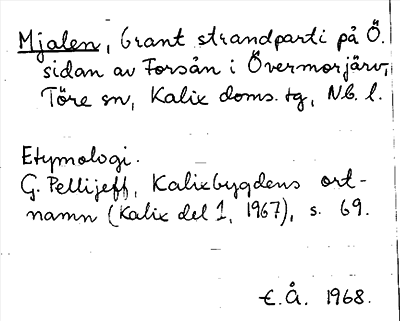 Mjalen, brant strandparti på Ö.
sidan av Forsån i Övermorjärv,
Töre sn, Kalix doms. tg, Nb. l.
Etymologi.
G. Pellijeff, Kalixbygdens ort-
namn (Kalix del 1, 1967), s. 69.
E.Å. 1968.